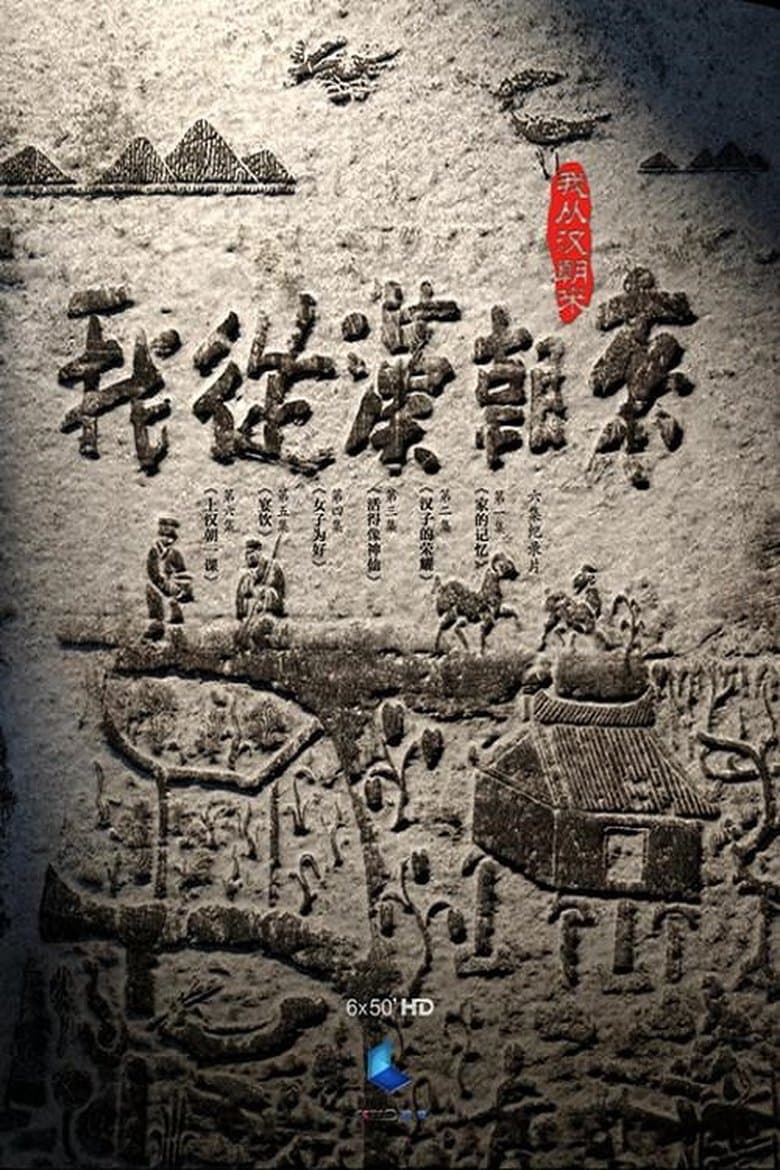 我从汉朝来
我從漢朝來
六集纪录片
第一集
《家的记忆》
第二集
《汉子的荣耀》
第三集
《活得像神仙》
第四集
《女子为好》
第五集
《宴饮》
第六集
《上汉朝一课》
6x50'HD